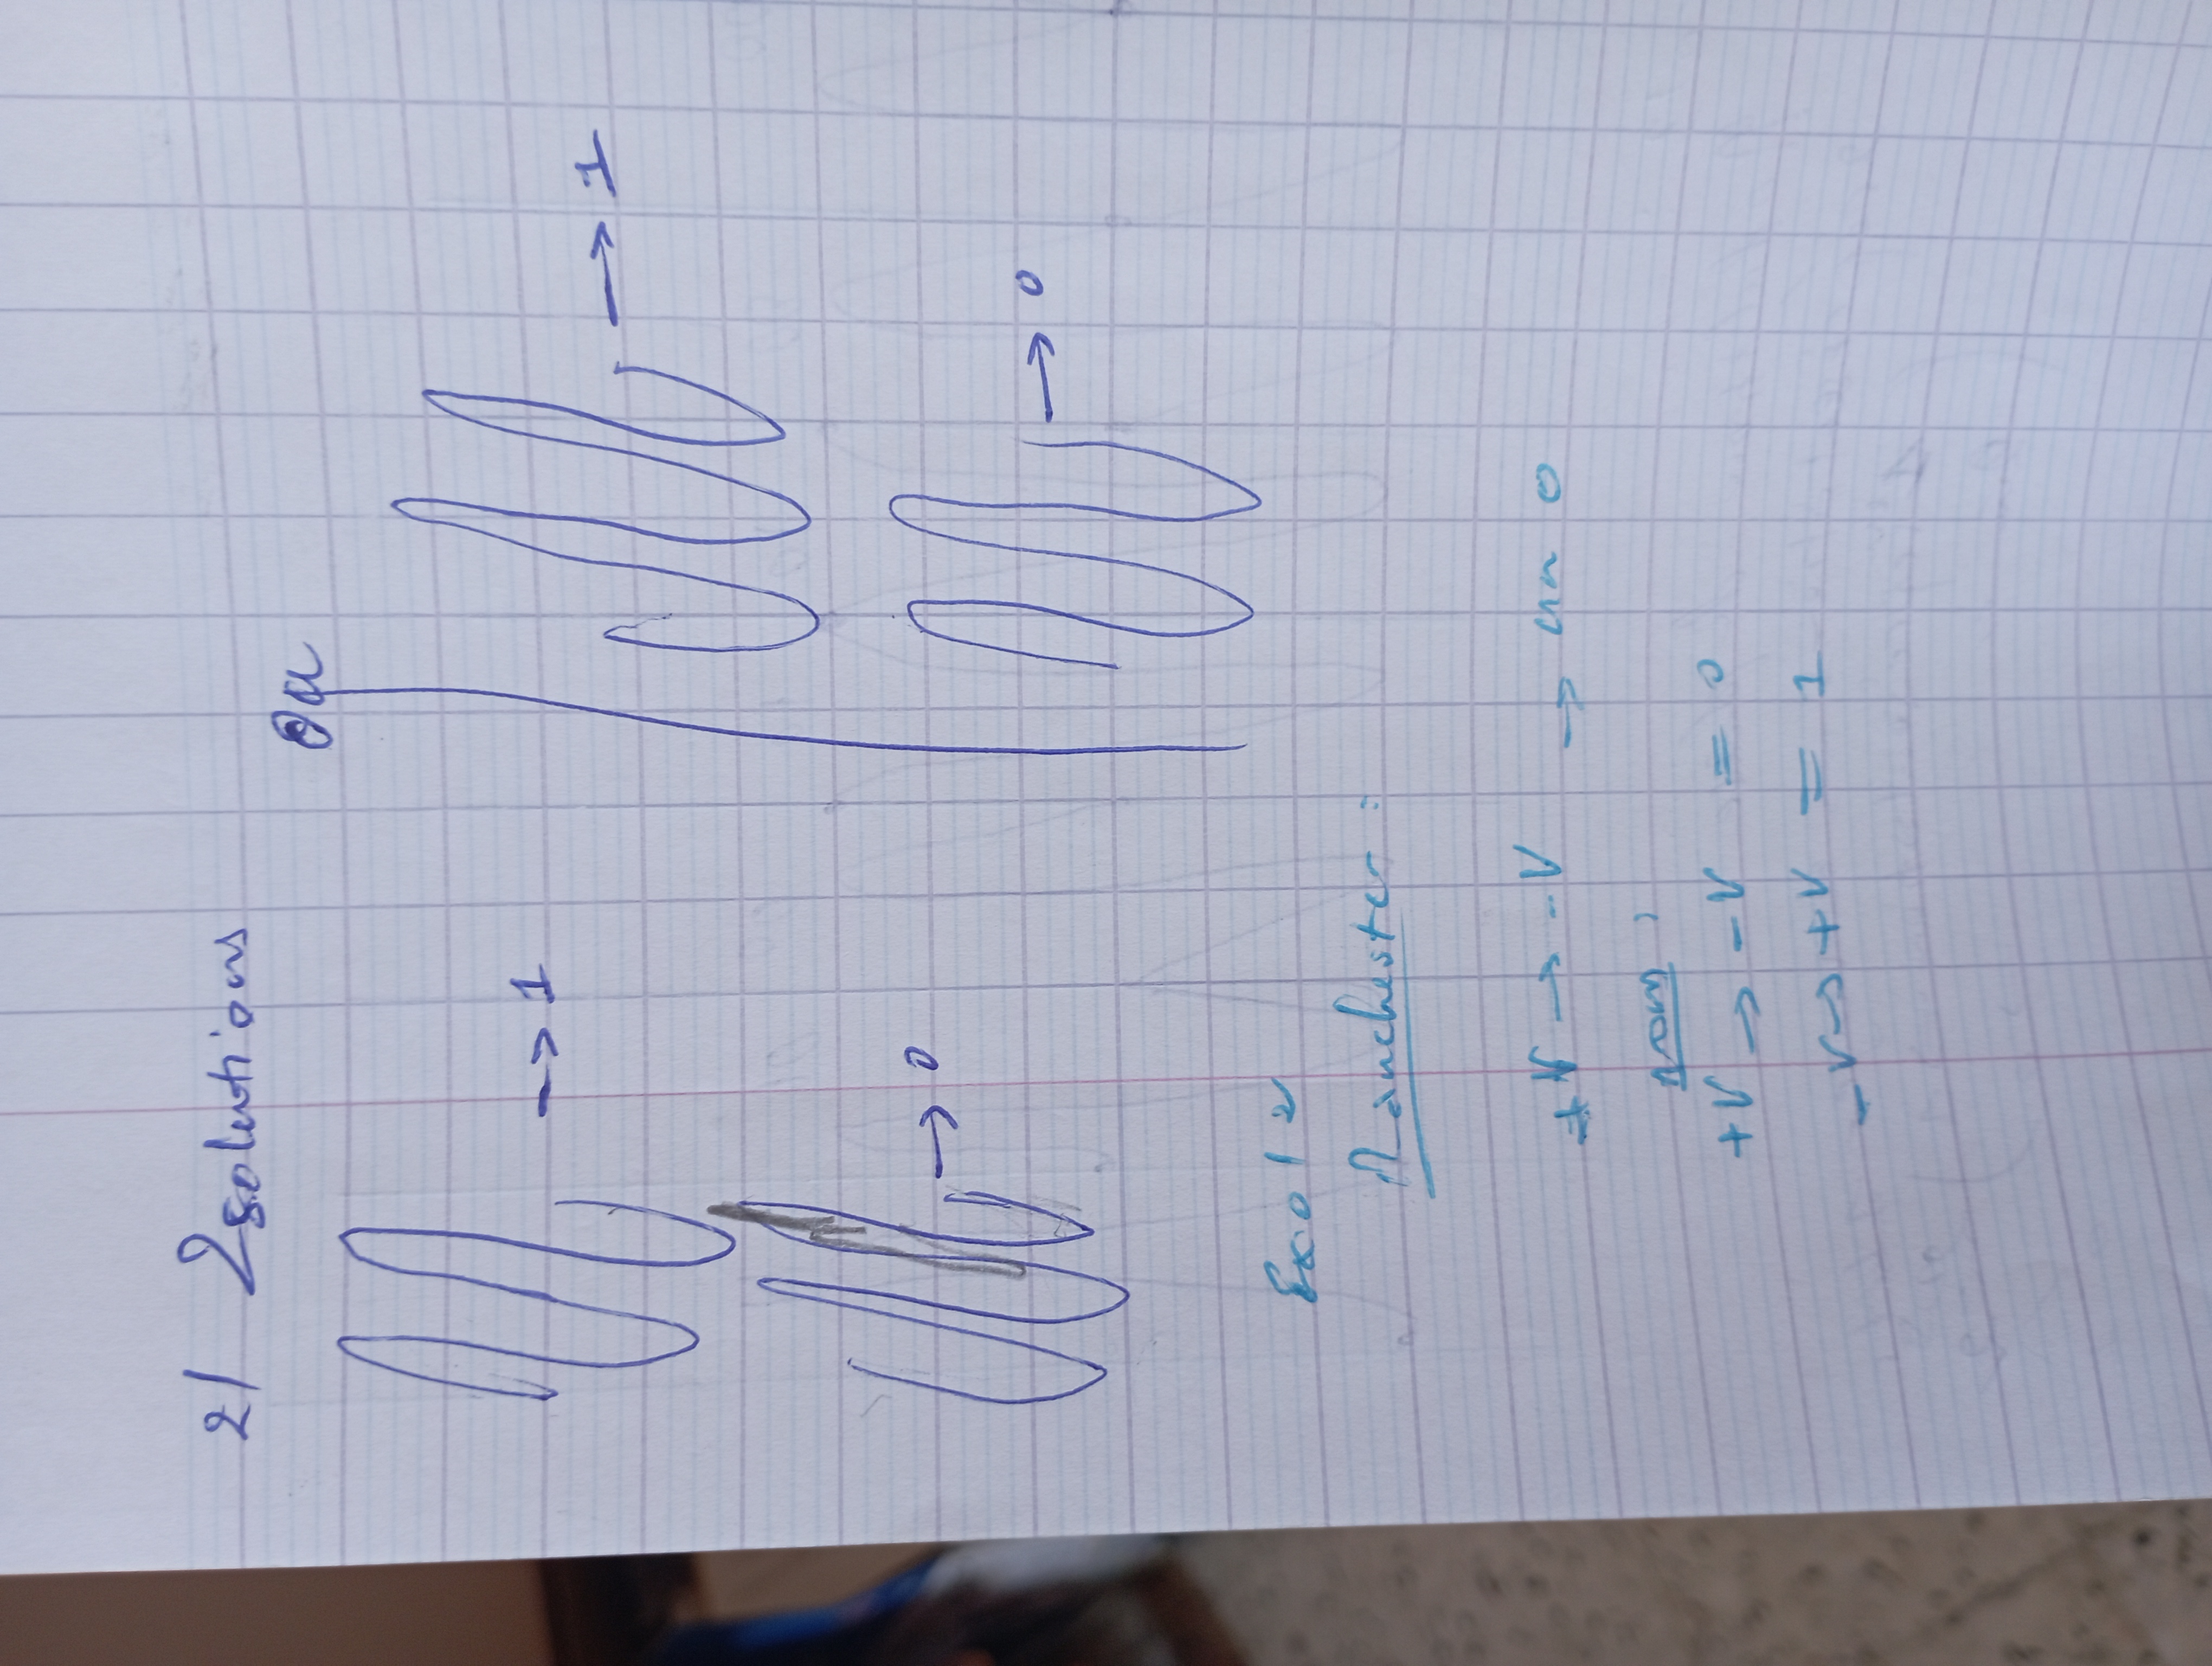 2/ 2 solutions
ou
→ 1
→ 0
→ 1
→ 0
Exo 12
Manchester :
+V → -V → un 0
nom :
+V → -V = 0
-V → +V = 1